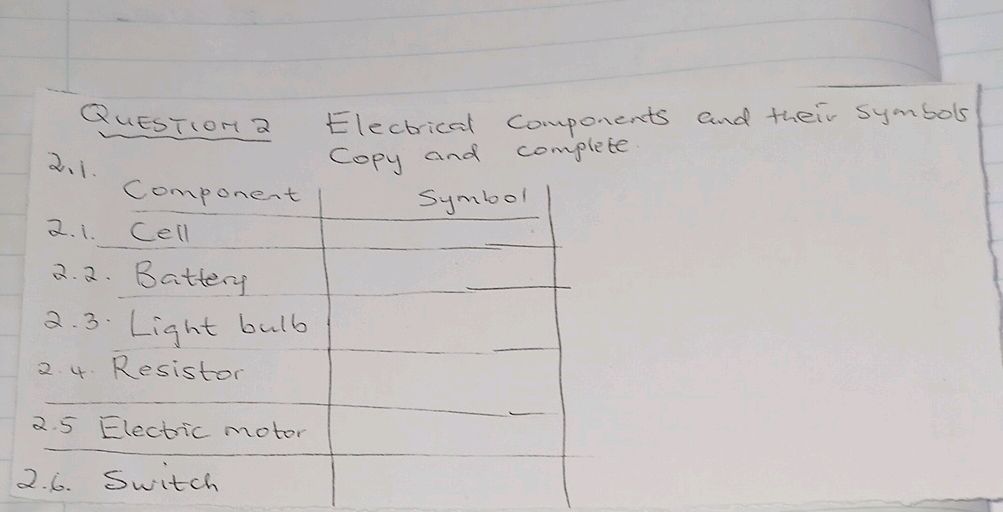 QUESTION 2 Electrical components and their symbols
Copy and complete.
2.1.
Component Symbol
2.1. Cell
2.2. Battery
2.3. Light bulb
2.4. Resistor
2.5 Electric motor
2.6. Switch